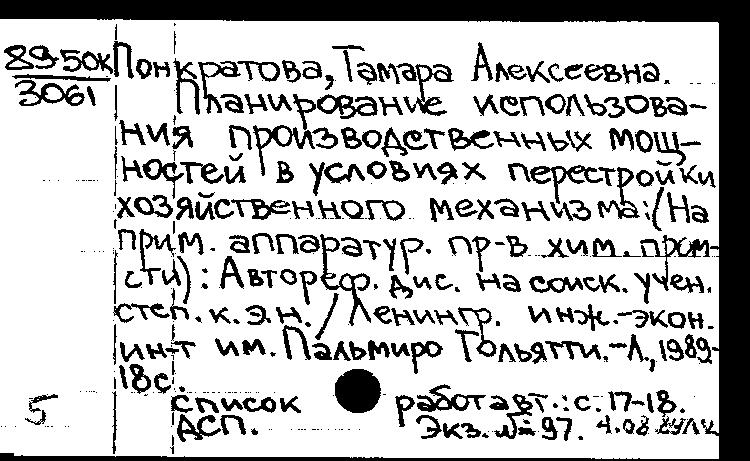 89-50к Понкратова, Тамара Алексеевна.
3061 Планирование использова-
ния производственных мощ-
ностей в условиях перестройки
хозяйственного механизма: (На
прим. аппаратур. пр-в хим. пром-
сти) : Автореф. дис. на соиск. учен.
степ. к. э. н. / Ленингр. инж.-экон.
ин-т им. Пальмиро Тольятти. - Л., 1989-
18 с.
5 список работ авт.: с. 17-18.
ДСП. Экз. №=97.